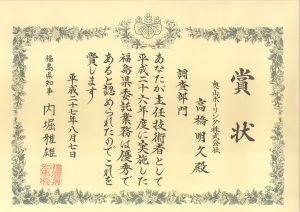 賞状
奥山ボーリング株式会社
高橋明久殿
調査部門
あなたが主任技術者として
平成二十六年度に実施した
福島県委託業務は優秀で
あると認められたのでこれを
賞します
平成二十七年八月七日
福島県知事 内堀雅雄